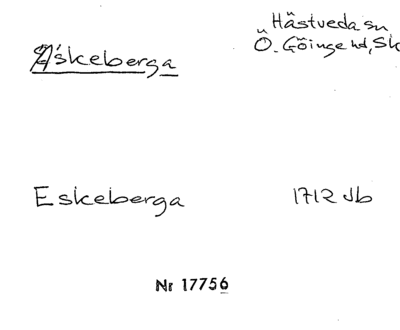 Hästveda sn
Äskeberga
Ö. Göinge hd, Sk
Eskeberga
1712 Jb
Nr 17756